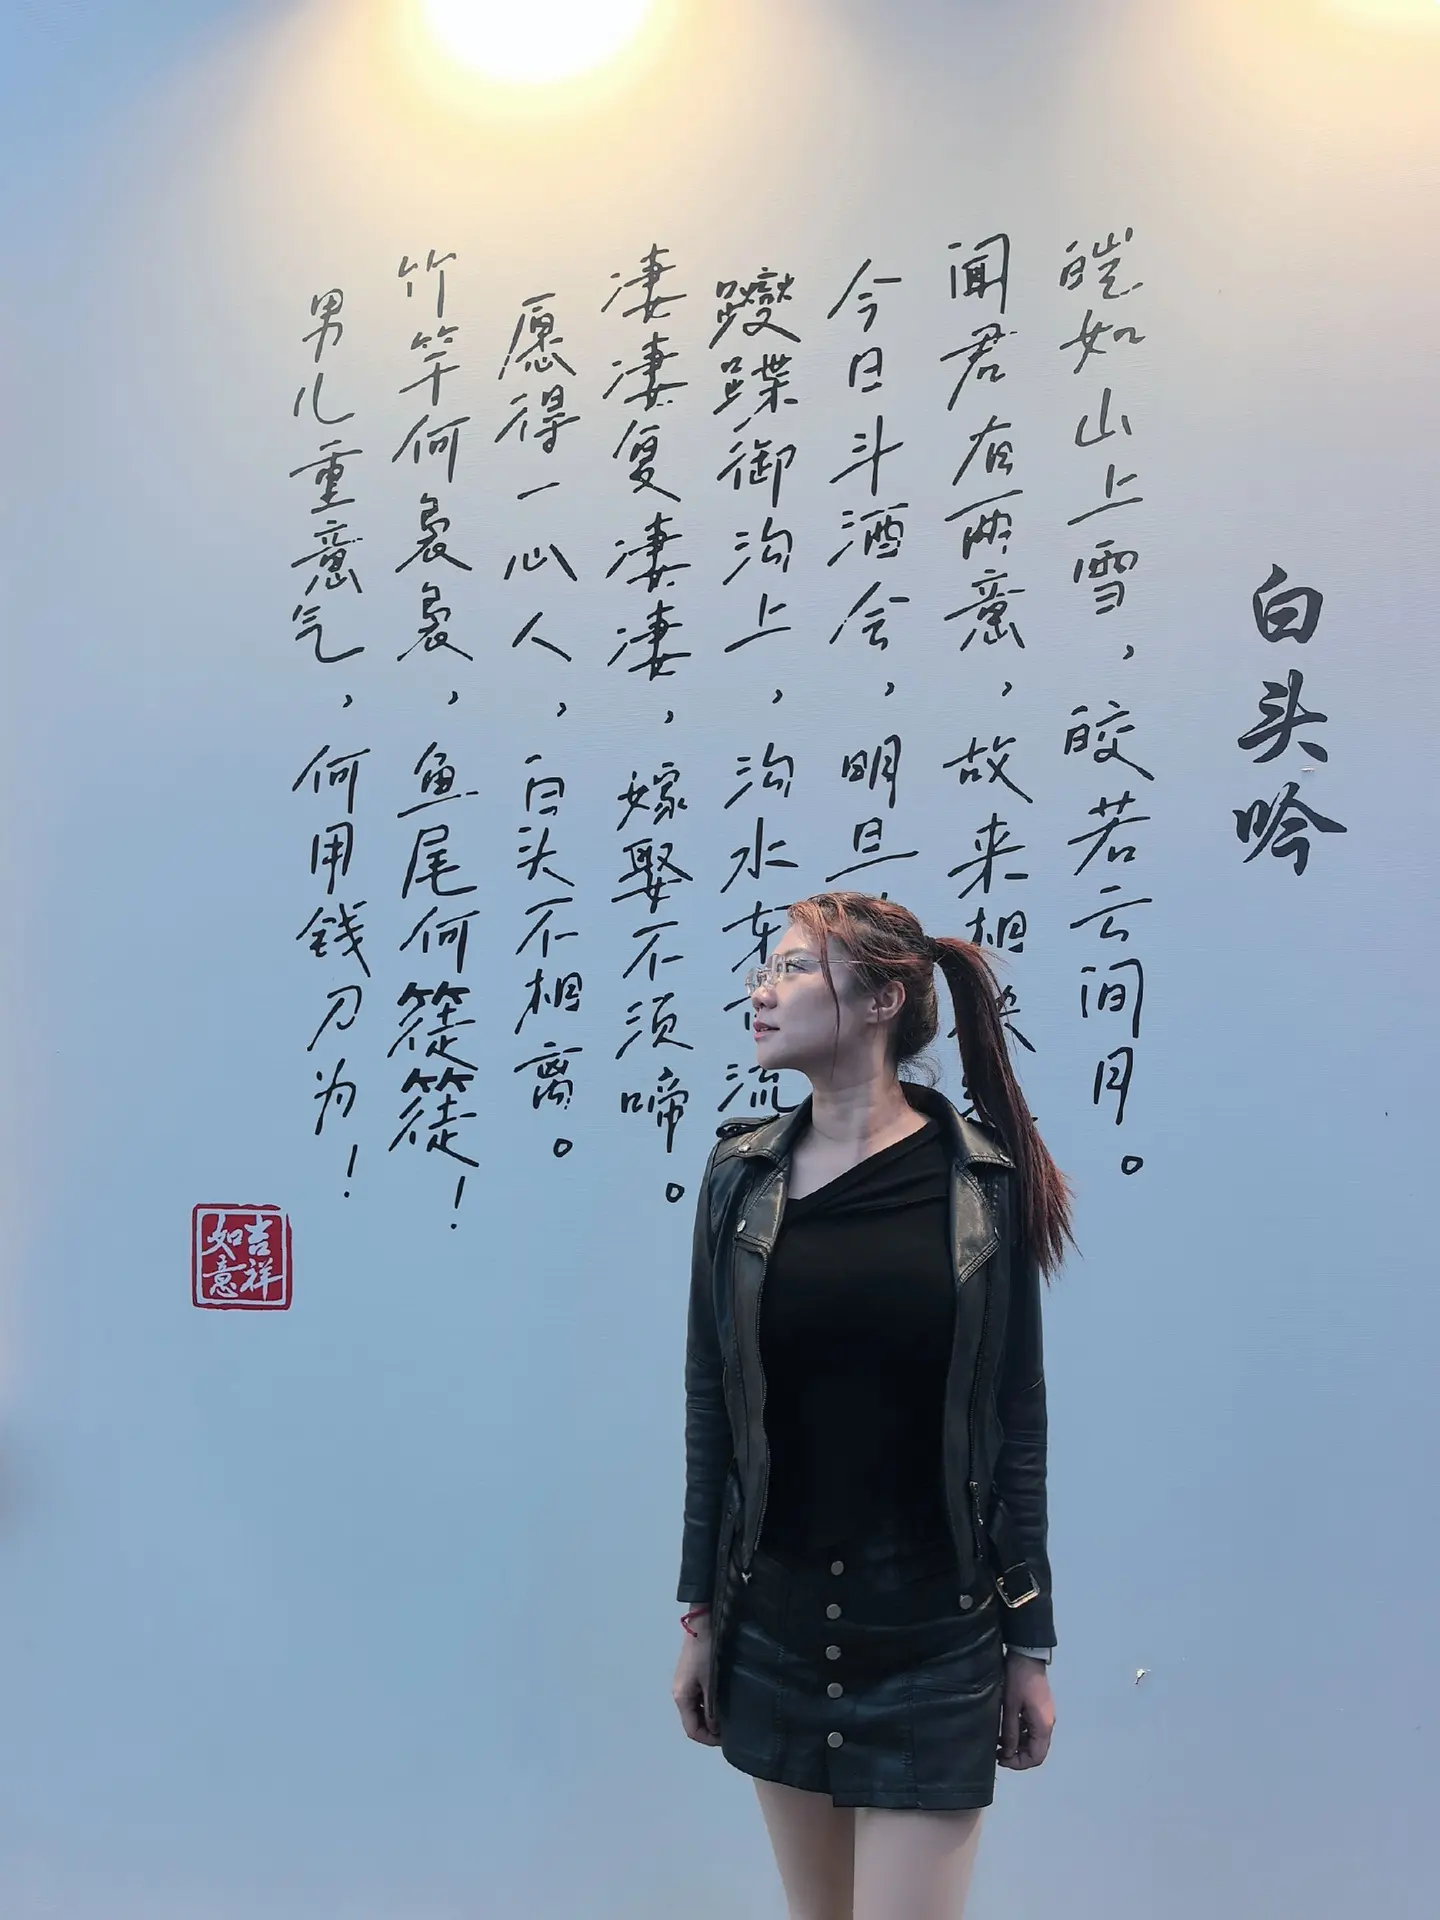 白头吟
皑如山上雪，皎若云间月。
闻君有两意，故来相决
今日斗酒会，明旦
躞蹀御沟上，沟水东西流
凄凄复凄凄，嫁娶不须啼。
愿得一心人，白头不相离。
竹竿何袅袅，鱼尾何簁簁！
男儿重意气，何用钱刀为！
吉祥
如意